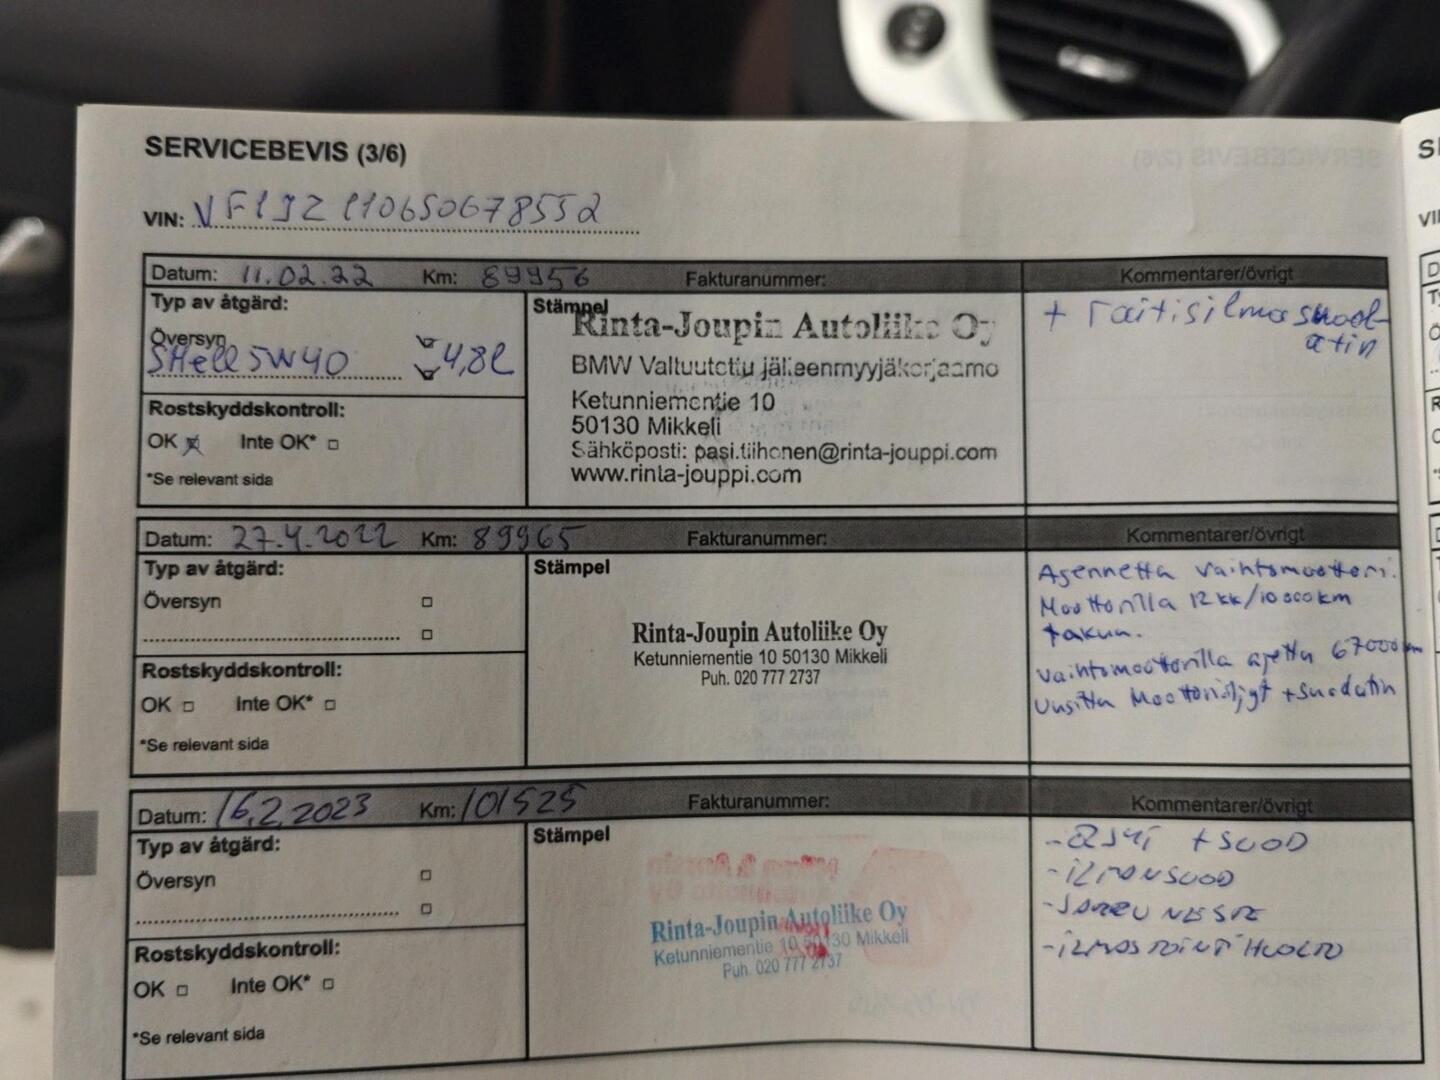 SERVICEBEVIS (3/6)
VIN: VF1JZ110650678552
Datum: 11.02.22 Km: 89956 Fakturanummer: Kommentarer/övrigt
Typ av åtgärd:
Översyn
Shell 5W40 4,8l
Rostskyddskontroll:
OK Inte OK*
*Se relevant sida
Stämpel
Rinta-Joupin Autoliike Oy
BMW Valtuutettu jälleenmyyjäkorjaamo
Ketunniementie 10
50130 Mikkeli
Sähköposti: pasi.tiihonen@rinta-jouppi.com
www.rinta-jouppi.com
+ raitisilmasuod-
atin
Datum: 27.4.2022 Km: 89965 Fakturanummer: Kommentarer/övrigt
Typ av åtgärd:
Översyn
Rostskyddskontroll:
OK Inte OK*
*Se relevant sida
Stämpel
Rinta-Joupin Autoliike Oy
Ketunniementie 10 50130 Mikkeli
Puh. 020 777 2737
Asennettu vaihtomoottori.
Moottorilla 12kk/10000km
takuu.
vaihtomoottorilla ajettu 67000km
Uusittu Moottoriöljyt + suodatin
Datum: 16.2.2023 Km: 101525 Fakturanummer: Kommentarer/övrigt
Typ av åtgärd:
Översyn
Rostskyddskontroll:
OK Inte OK*
*Se relevant sida
Stämpel
Rinta-Joupin Autoliike Oy
Ketunniementie 10 50130 Mikkeli
Puh. 020 777 2737
-ÖLJYT + SUOD
-ILMANSUOD
-JARRUNESTE
-ILMASTOINTIHUOLTO